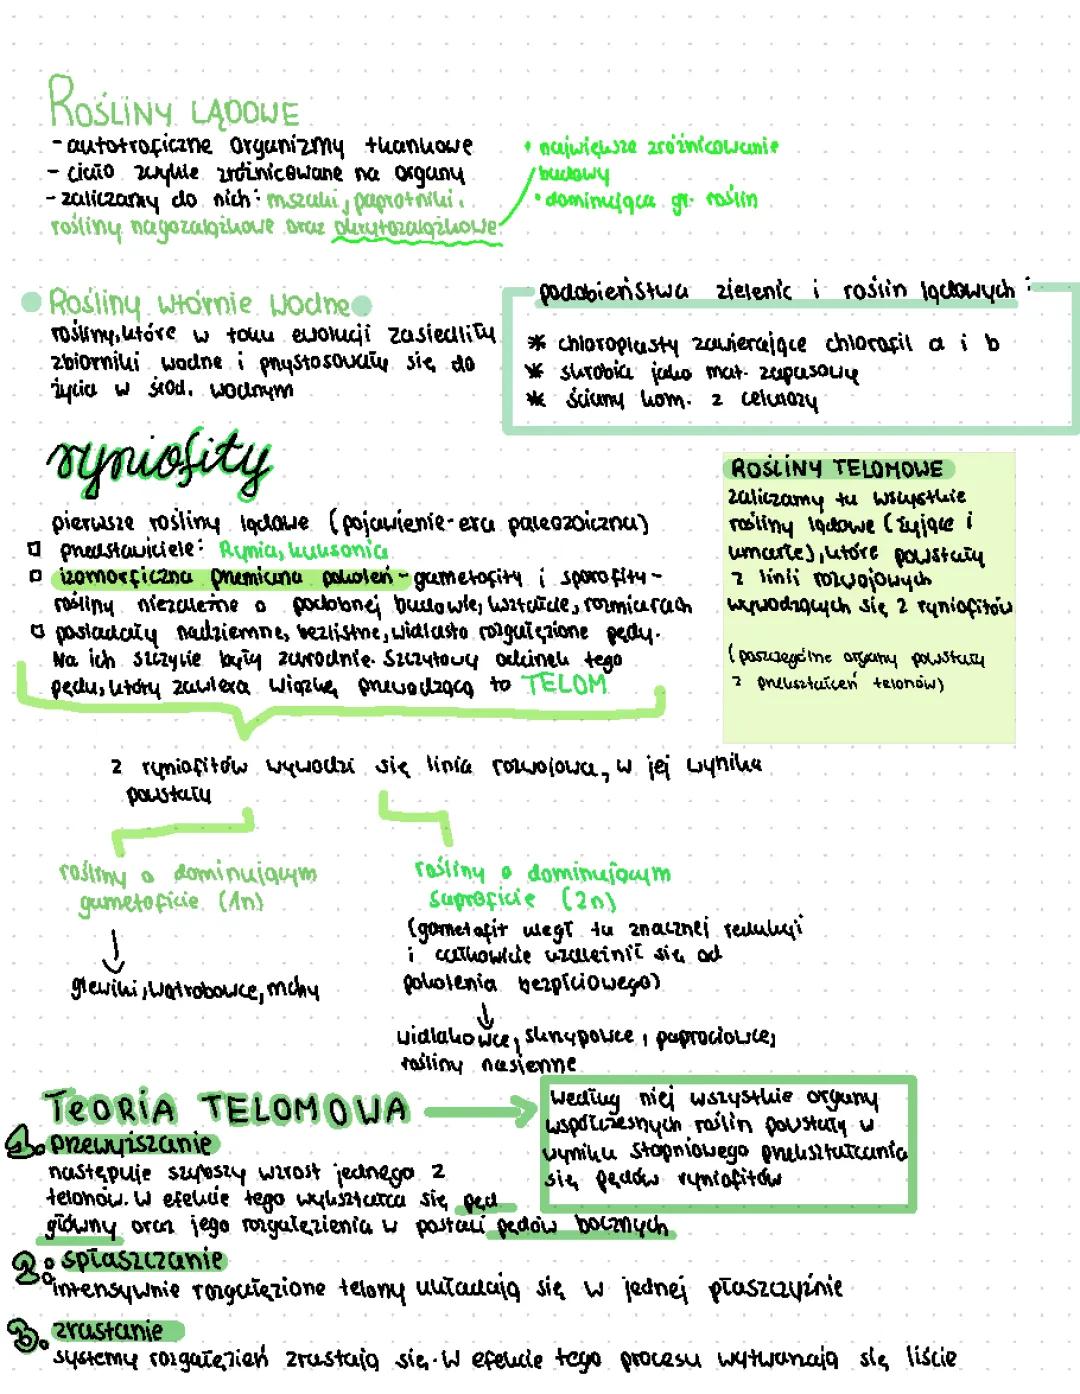 ROŚLINY LĄDOWE
- autotroficzne organizmy tkankowe
- ciało zwykle zróżnicowane na organy
- zaliczamy do nich: mszaki, paprotniki,
rośliny nagozalążkowe oraz okrytozalążkowe
• największe zróżnicowanie
budowy
• dominująca gr. roślin
Rośliny wtórnie wodne
rośliny, które w toku ewolucji zasiedliły
zbiorniki wodne i przystosowały się do
życia w środ. wodnym
podobieństwa zielenic i roślin lądowych:
* chloroplasty zawierające chlorofil a i b
* skrobia jako mat. zapasowy
* ściany kom. z celulozy
ryniofity
pierwsze rośliny lądowe (pojawienie-era paleozoiczna)
przedstawiciele: Rynia, kuksonia
izomorficzna przemiana pokoleń - gametofity i sporofity -
rośliny niezależne o podobnej budowie, kształcie, rozmiarach
posiadały nadziemne, bezlistne, widlasto rozgałęzione pędy.
Na ich szczycie były zarodnie. Szczytowy odcinek tego
pędu, który zawiera wiązkę przewodzącą to TELOM
ROŚLINY TELOMOWE
zaliczamy tu wszystkie
rośliny lądowe (żyjące i
umarłe), które powstały
z linii rozwojowych
wywodzących się z ryniofitów
(poszczególne organy powstały
z przekształceń telomów)
z ryniofitów wywodzi się linia rozwojowa, w jej wyniku
powstały
rośliny o dominującym
gametoficie (1n)
glewiki, wątrobowce, mchy
rośliny o dominującym
suproficie (2n)
(gametofit uległ tu znacznej redukcji
i całkowicie uzależnił się od
pokolenia bezpłciowego)
widłakowce, skrzypowce, paprociowce,
rośliny nasienne
TEORIA TELOMOWA
według niej wszystkie organy
współczesnych roślin powstały w
wyniku stopniowego przekształcania
się pędów ryniofitów
1. przewyższanie
następuje szybszy wzrost jednego z
telomów. W efekcie tego wykształca się pęd
główny oraz jego rozgałęzienia w postaci pędów bocznych
2. spłaszczanie
intensywnie rozgałęzione telomy układają się w jednej płaszczyźnie
3. zrastanie
systemy rozgałęzień zrastają się. W efekcie tego procesu wytwarzają się liście